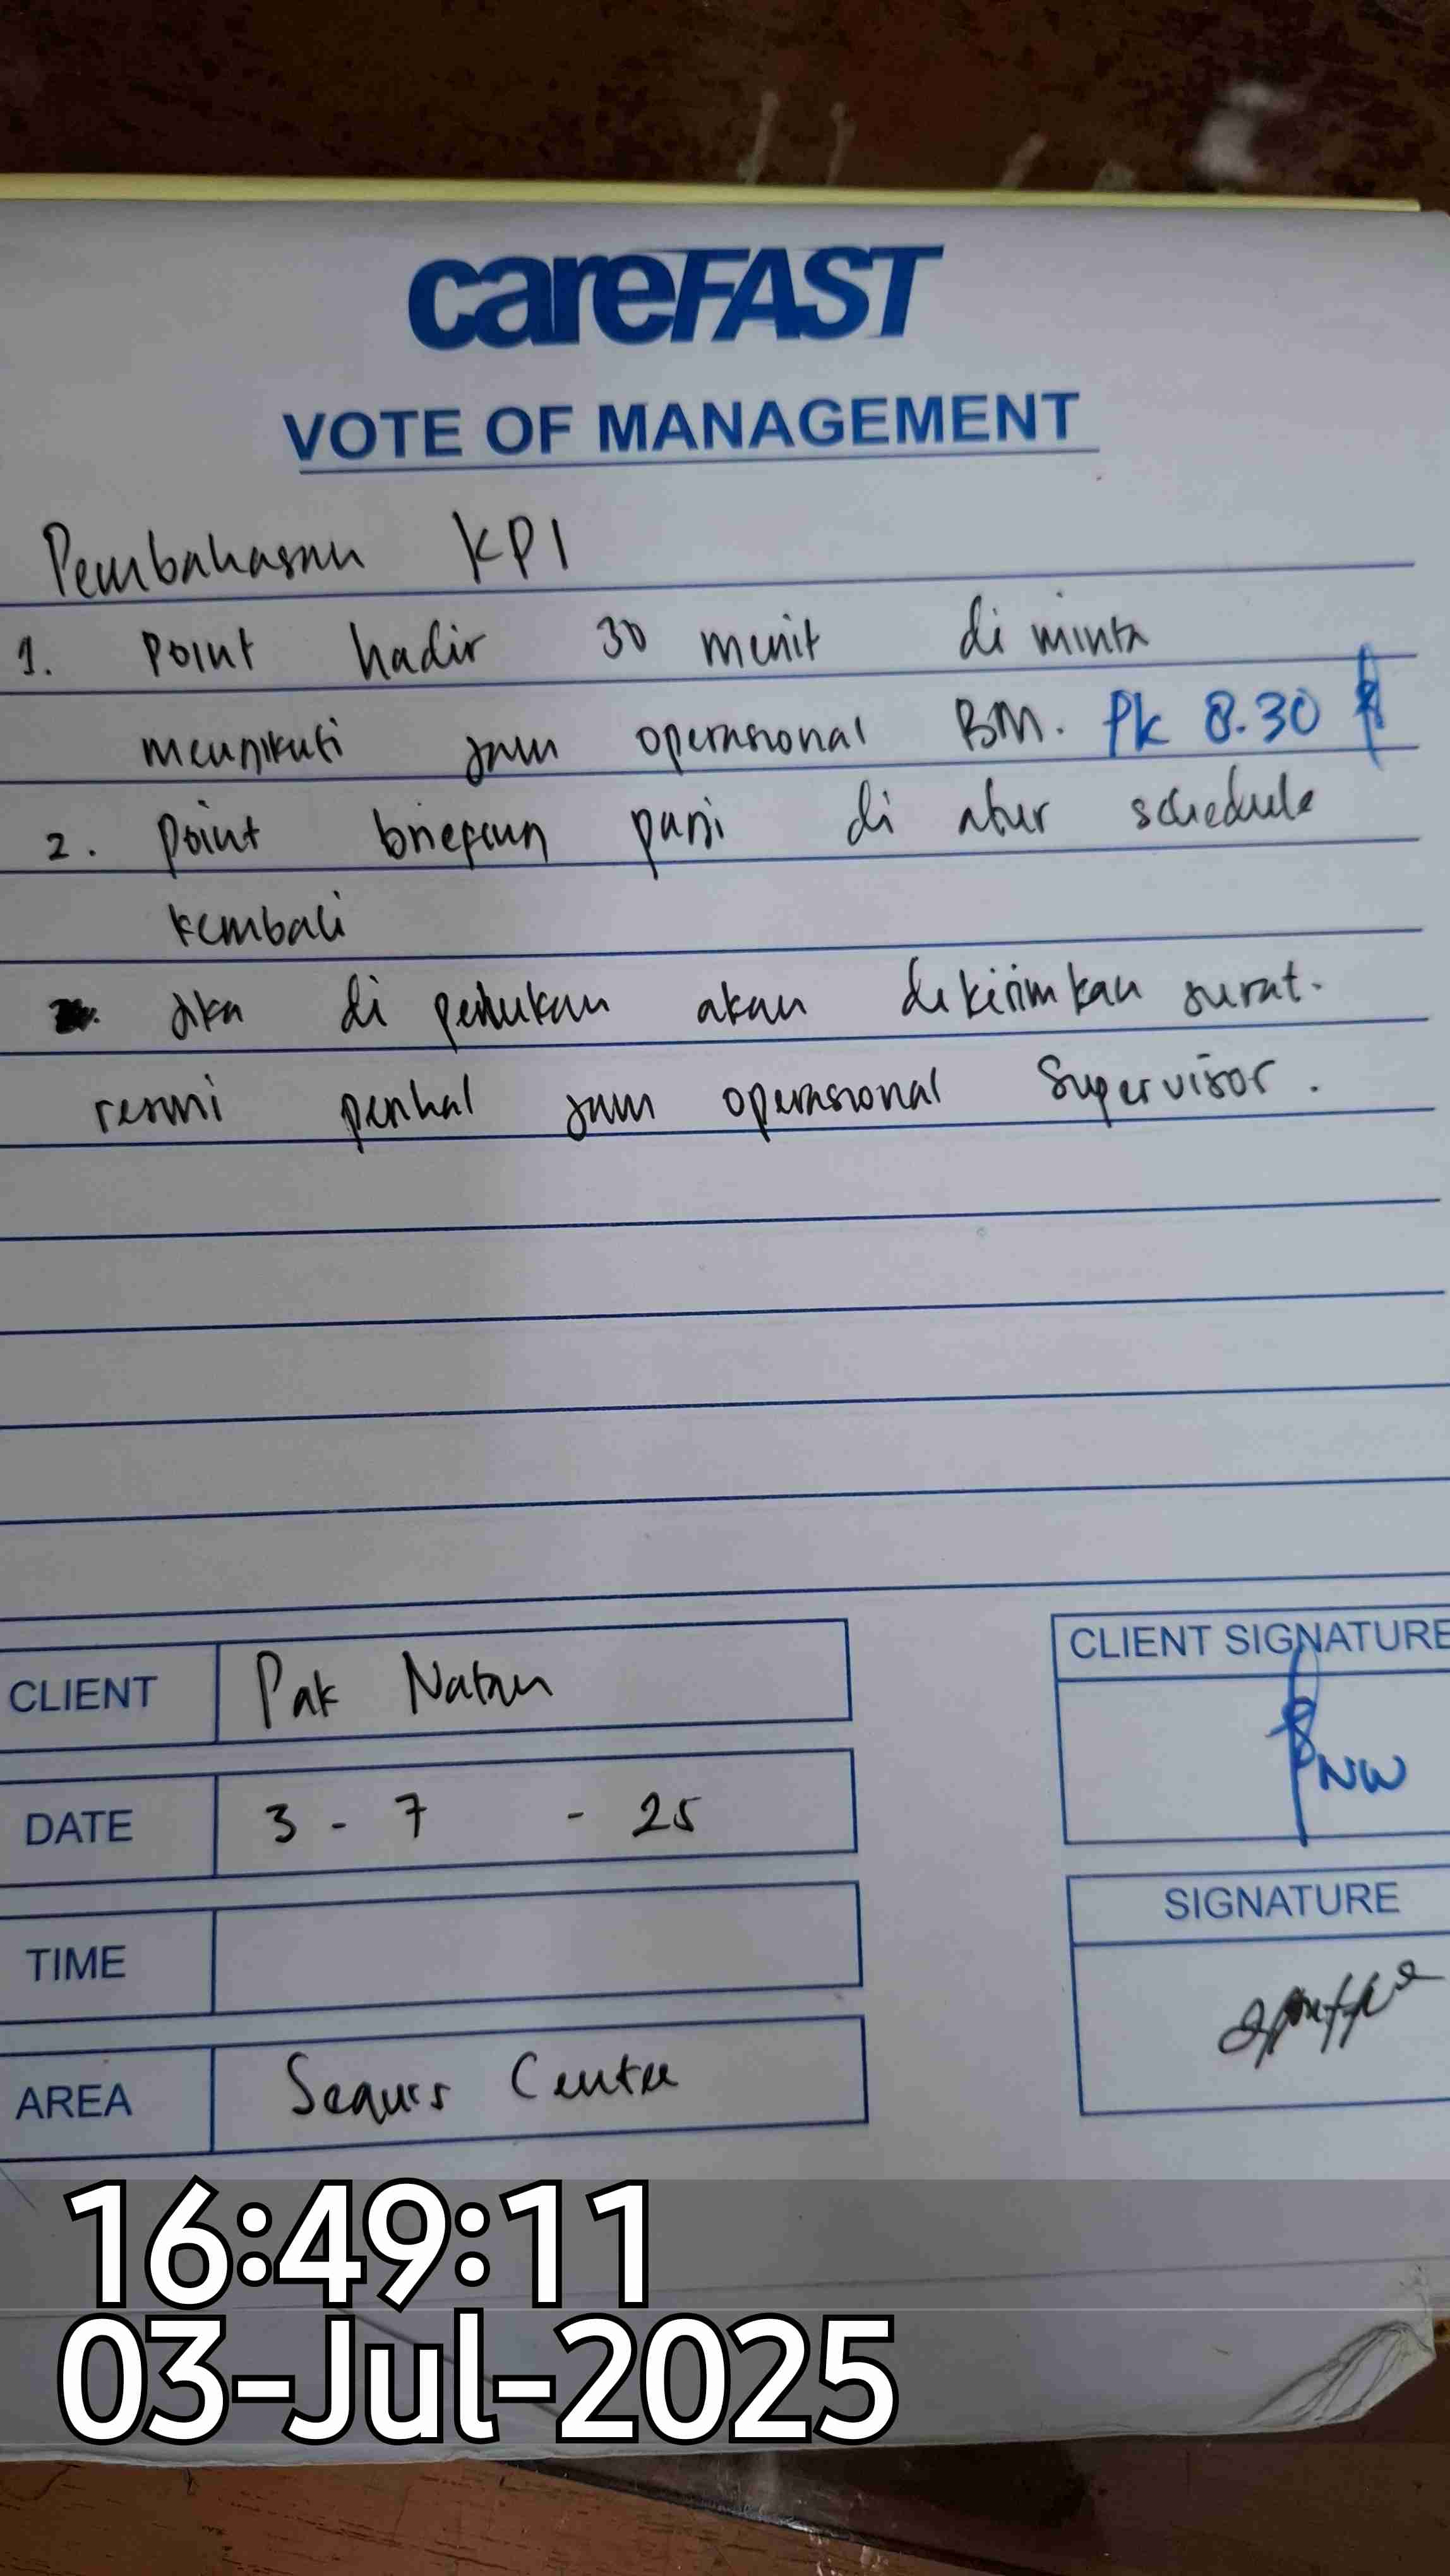 careFAST
VOTE OF MANAGEMENT
Pembahasan KPI
1. Point hadir 30 menit di minta
mengikuti jam operasional BM. Pk 8.30
2. Point briefing pagi di atur schedule
kembali
Jika di perlukan akan dikirimkan surat.
resmi perihal jam operasional Supervisor.
CLIENT Pak Natan
DATE 3 - 7 - 25
TIME
AREA Sequis Center
CLIENT SIGNATURE
NW
SIGNATURE
16:49:11
03-Jul-2025